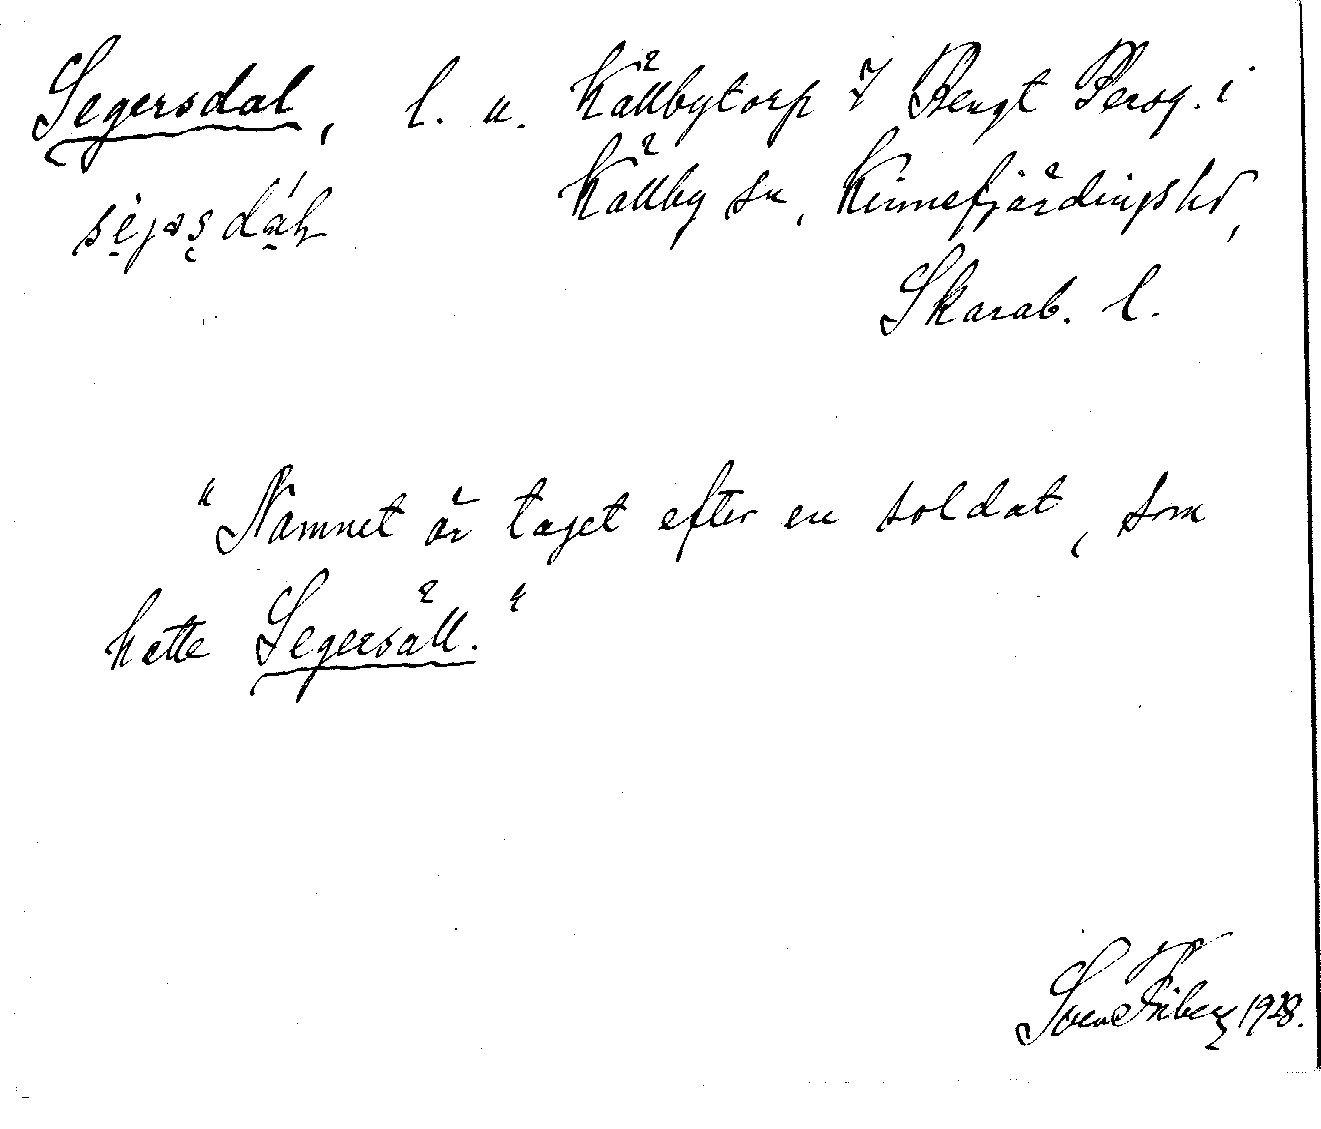 Segersdal, l. u. Källbytorp 7 Bengt Persg. i
Källby sn, Kinnefjärdingshd,
Skarab. l.
"Namnet är taget efter en soldat, som
hette Segersäll."
Sven Friberg 1928.